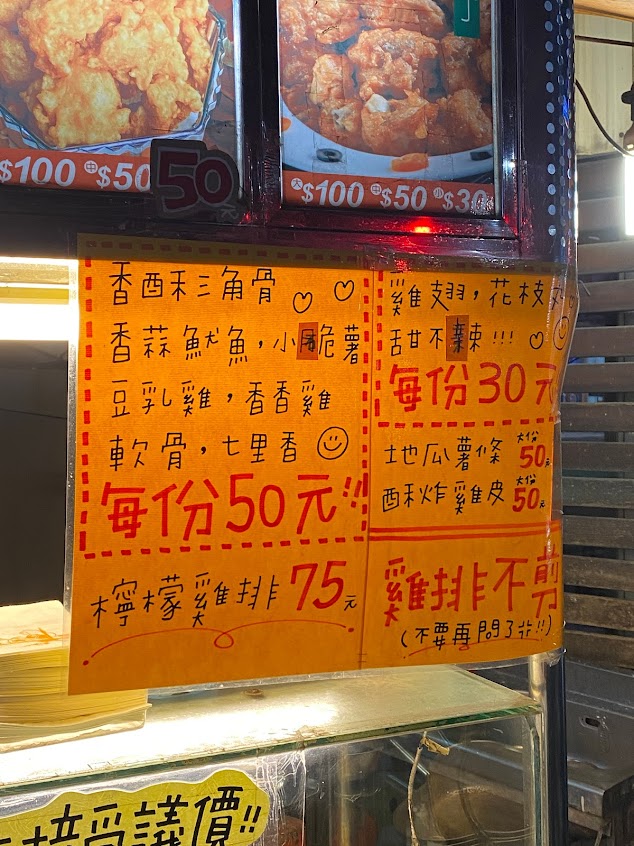 $100 中$50
50元
大$100 中$50 小$30
香酥三角骨
香蒜魷魚,小 脆薯
豆乳雞,香香雞
軟骨,七里香
每份50元!!
檸檬雞排75元
雞翅,花枝丸
甜不辣!!!
每份30元
地瓜薯條 大份50元
酥炸雞皮 大份50元
雞排不剪
(不要再問了啦!!)
接受議價!!